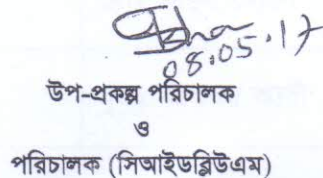 08.05.17
উপ-প্রকল্প পরিচালক
ও
পরিচালক (সিআইডব্লিউএম)